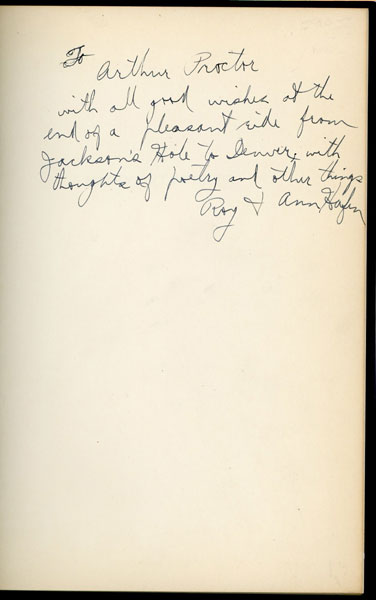 To
Arthur Proctor
with all good wishes at the
end of a pleasant ride from
Jackson's Hole to Denver, with
thoughts of poetry and other things
Roy & Ann Hafen